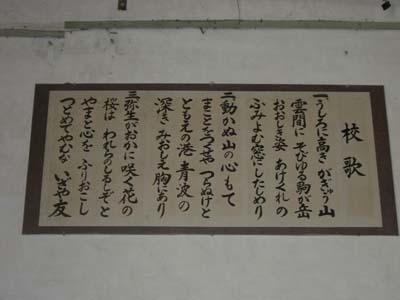 校歌
一うしろに高き がぎゅう山
雲間に そびゆる駒が岳
おおしき姿 あけくれの
ふみよむ窓にしたしめり
二動かぬ山の心もて
まことをつくせや つらぬけと
ともえの港 青波の
深きみおしえ胸にあり
三弥生がおかに咲く花の
桜は われらのしるしぞと
やまと心を ふりおこし
つとめてやむな いざや友